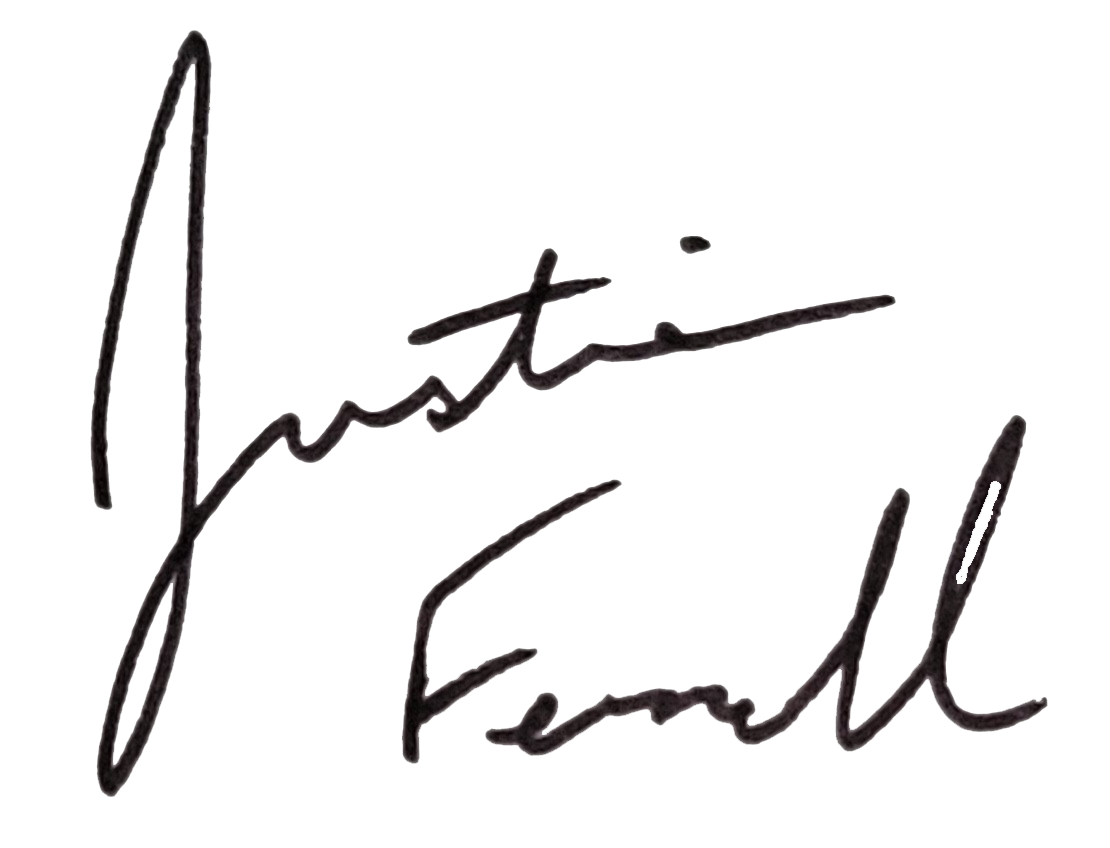 Justin
Ferrell